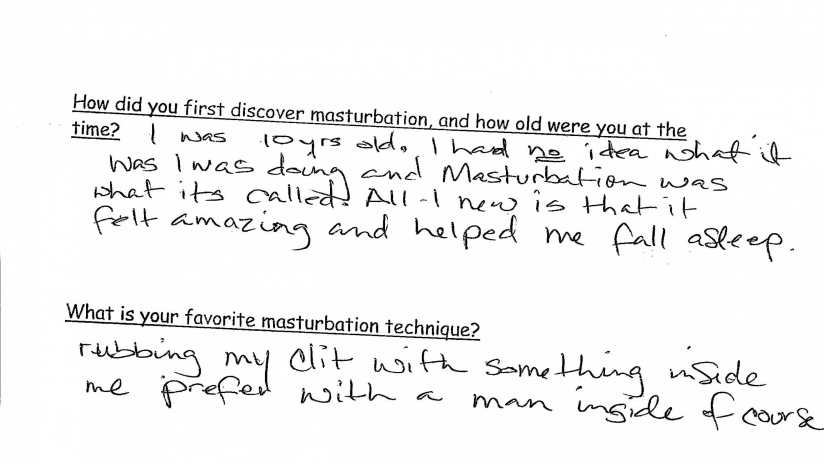 How did you first discover masturbation, and how old were you at the
time? I was 10 yrs old. I had no idea what it
was I was doing and Masturbation was
what its called. All I new is that it
felt amazing and helped me fall asleep.
What is your favorite masturbation technique?
rubbing my clit with something inside
me prefer with a man inside of course